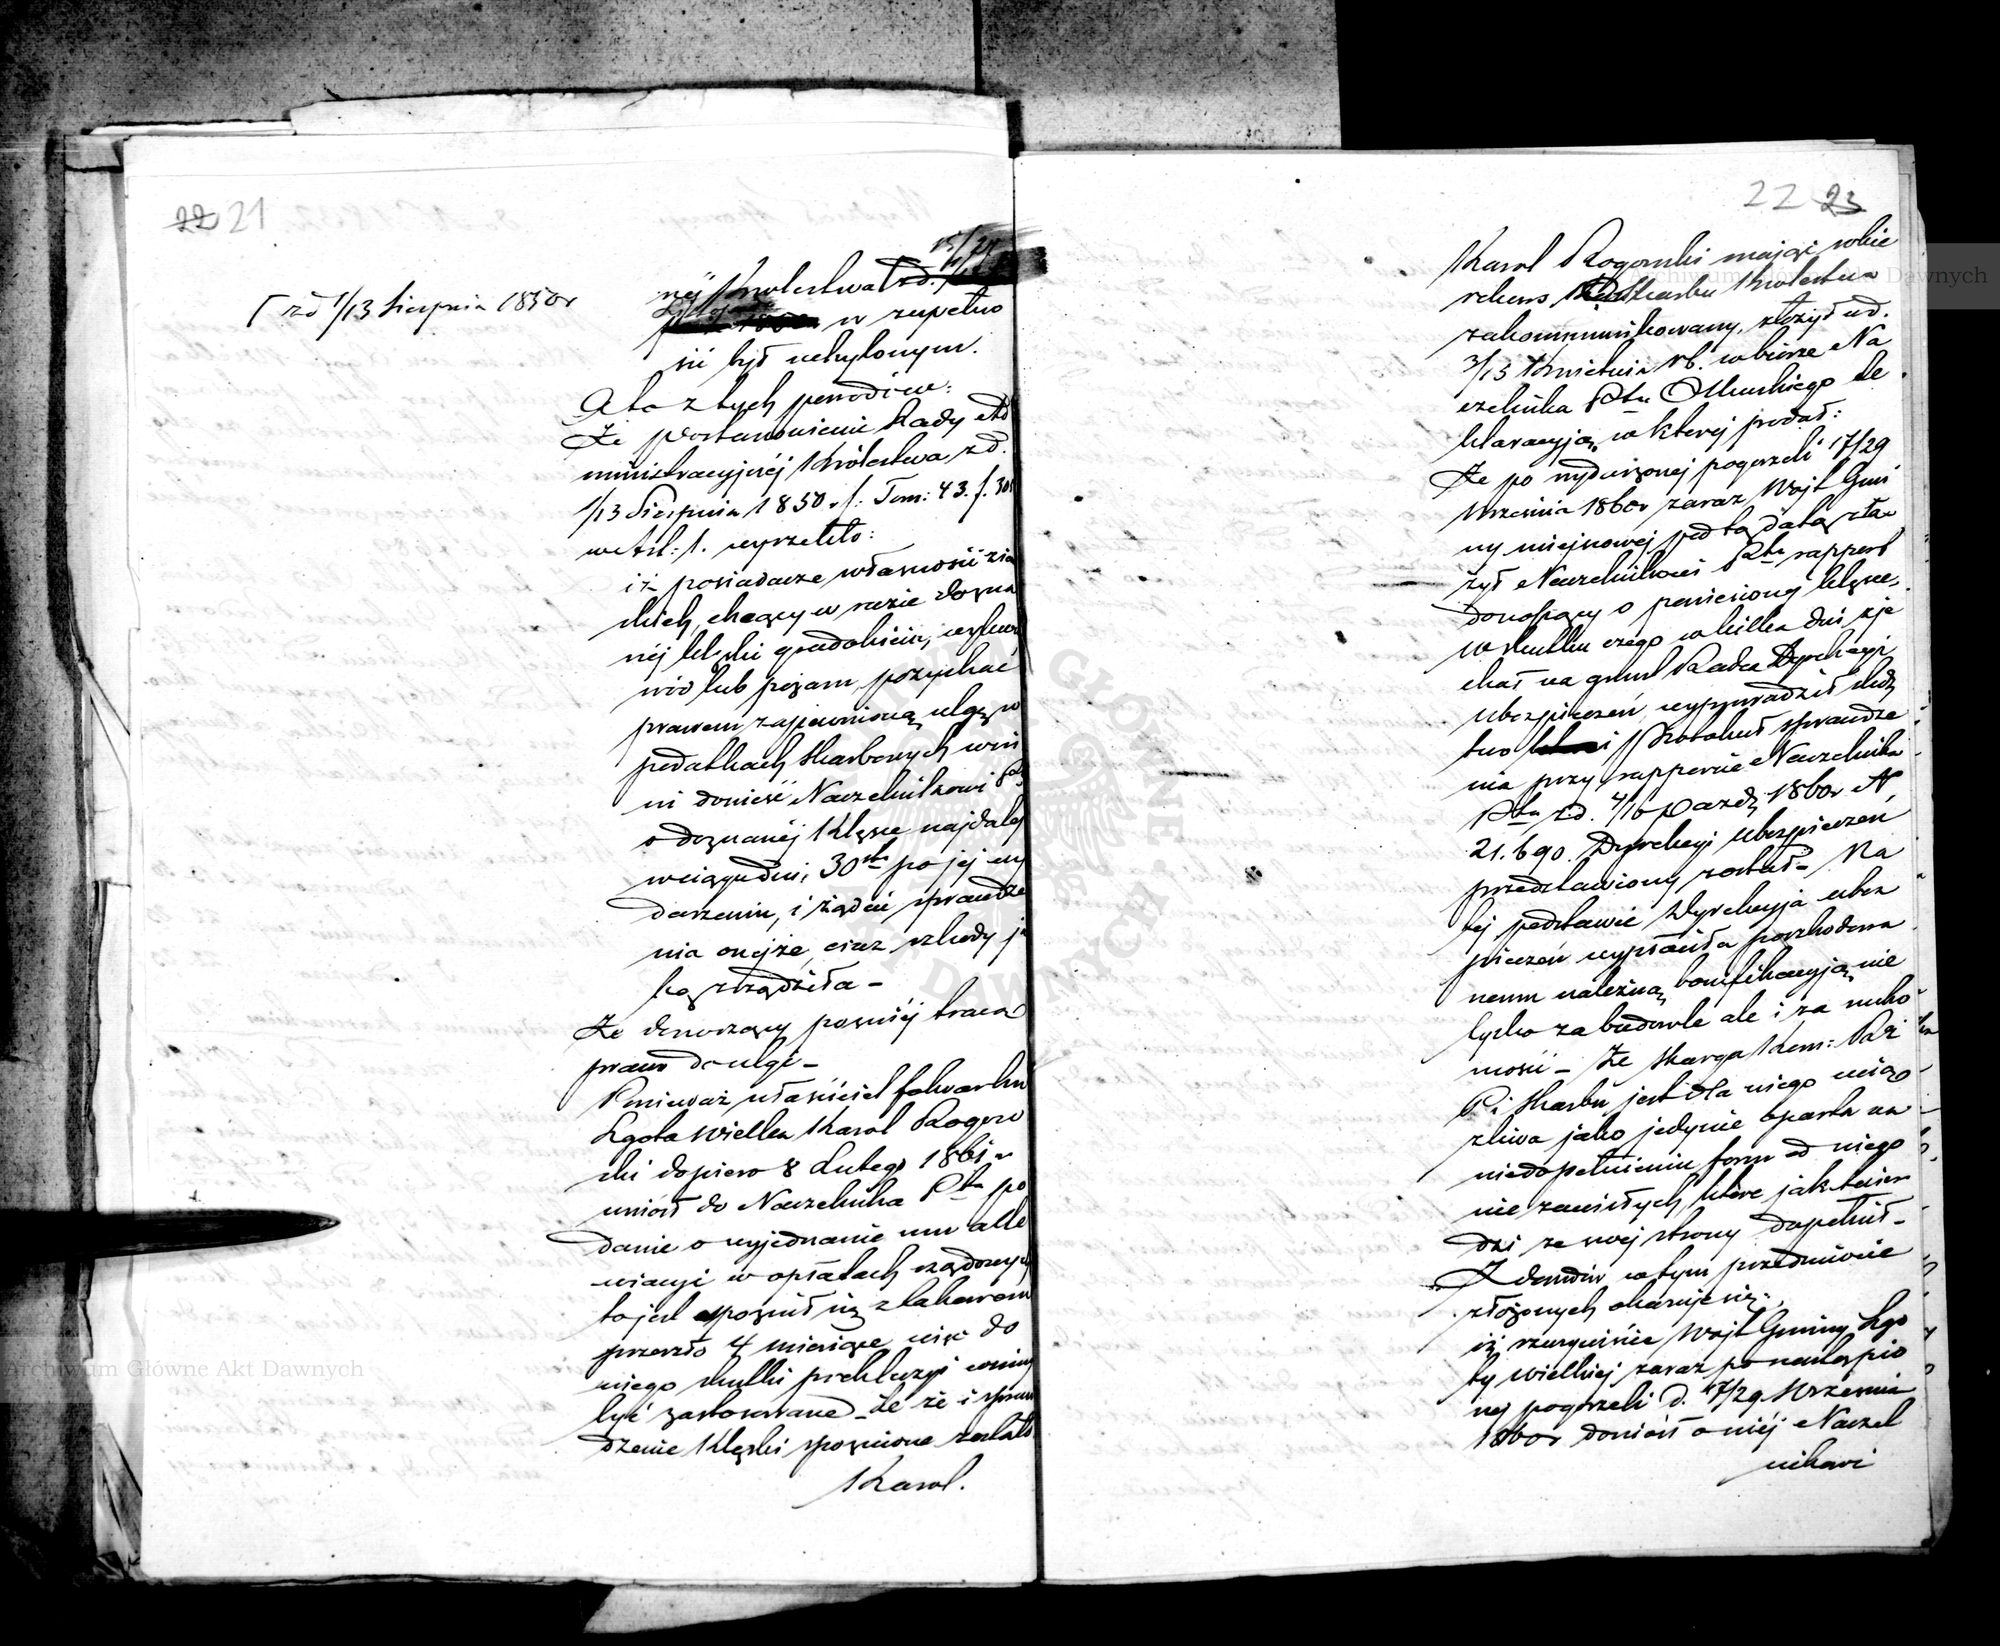 22 21
[ z d 1/13 Sierpnia 1850r
nej Królestwa z d.
w zupełno
ści był uchylonym.
A to z tych powodów:
Że postanowienie Rady Ad
ministracyjnéj Królestwa z d.
1/13 Sierpnia 1850 r. Tom: 43. f. 301
w Art: 1. wyrzekło:
iż posiadacze własności ziem
skich, chcący w razie dozna
néj klęski gradobicia, wylewu
wód lub pożaru, pozyskać
prawem zapewnioną ulgę w
podatkach skarbowych win
ni donieść Naczelnikowi Ptu
o doznanéj Klęsce najdaléj
w ciągu dni 30stu po jej wy
darzeniu, i żądać sprawdze
nia onejże, oraz szkody ja
ką zrządziła –
Że donoszący poźniéj traca
prawo do ulgi –
Ponieważ właściciel folwarku
Lgota Wielka Karol Rogow
ski dopiero 8 Lutego 1861 r.
wniósł do Naczelnika Ptu po
danie o wyjednanie mu alle
wiacyi w opłatach rządowych
to jest spóźnił się z takowem
przeszło 4 miesiące więc do
niego skutki prekluzyi winny
być zastosowane – że zé i spraw
dzenie Klęski spoźnione zostało
Karol.
22 23
Karol Rogowski mając sobie
rekurs Skarbu Królestwa
zakommunikowany, złożył w d.
3/13 Kwietnia rb. w biurze Na
czelnika Ptu Olkuskiego de
klaracyją, w któréj podał:
Że po wydarzonej pogorzeli 17/29
Września 1860r zaraz Wójt Gmi
ny miejscowej pod tą datą zło
żył Naczelnikowi Ptu rapport
donoszący o poniesionej klęsce,
w skutku czego w kilka dni zje
chał na grunt Radca Dyrekcyi
Ubezpieczeń, wyprowadził śledz
two i Protokuł sprawdze
nia przy rapporcie Naczelnika
Ptu z d. 4/16 Paźdz. 1860r N
21.690. Dyrekcyi Ubezpieczeń
przedstawiony został – Na
tej podstawie Dyrekcyja ubez
pieczeń wypłaciła poszkodowa
nemu należną bonifikacyją nie
tylko za budowle ale i za rucho
mości – Że skarga Kom: Rz:
P. i Skarbu jest dla niego uciąż
liwa jako jedynie oparta na
niedopełnieniu form od niego
nie zawisłych, które jak twier
dzi ze swej strony dopełnił –
Z dowodów w tym przedmiocie
złożonych okazuje się:
iż rzeczywiście Wójt Gminy Lgo
ty Wielkiej zaraz po nastąpio
nej pogorzeli d. 17/29 Września
1860r doniósł o niéj Naczel
nikowi
Archiwum Główne Akt Dawnych
Archiwum Główne Akt Dawnych